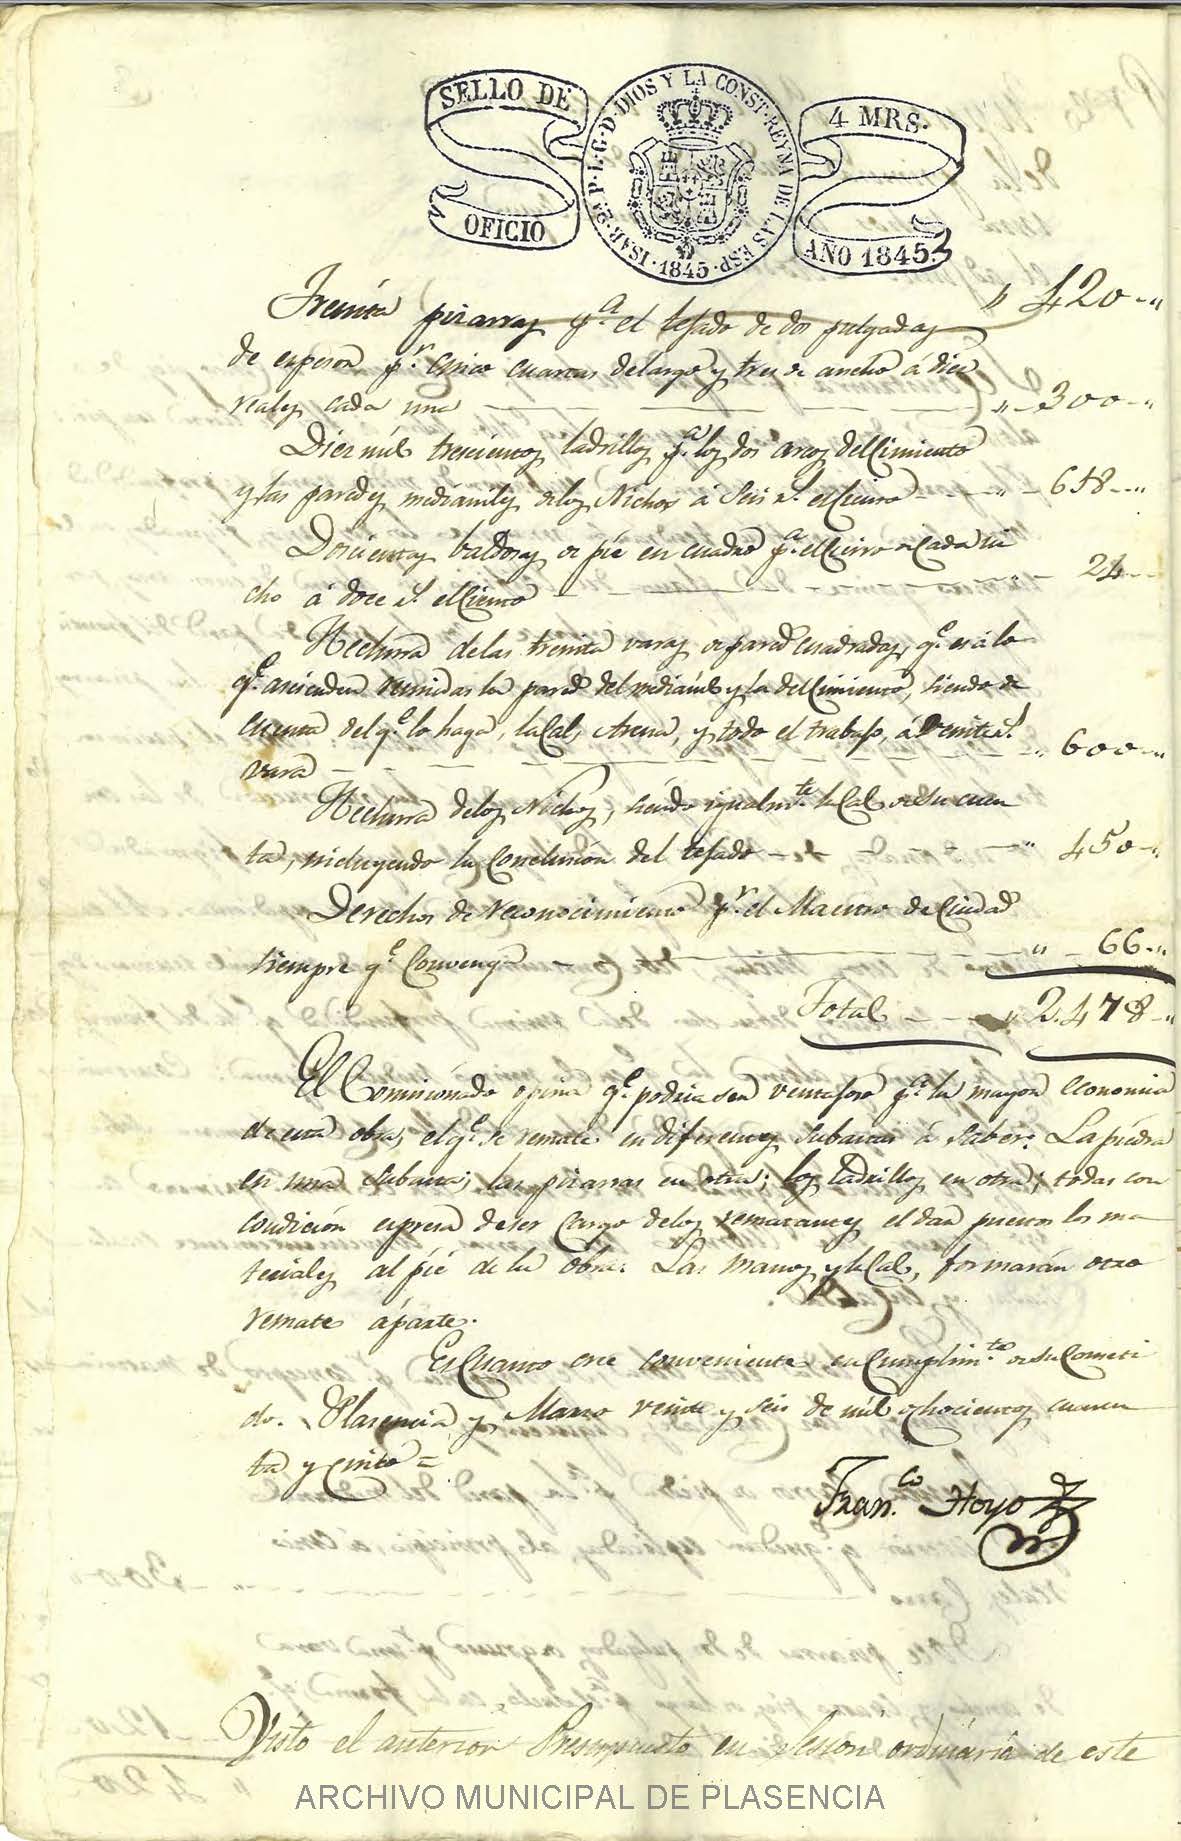 SELLO DE OFICIO
ISAB. 2ª P. L. G. D. DIOS Y LA CONST. REYNA DE LAS ESP. 1845
4 MRS. AÑO 1845.
" 420 "
Treinta pizarras pª el tejado de dos pulgadas
de espesor pr cinco cuartas de largo y tres de ancho á diez
reales cada una " 300 "
Diez mil trescientos ladrillos pª los dos arcos del Cimiento
y las paredes medianiles de los Nichos á Seis rs el Ciento " 618 "
Doscientas baldosas de pie en cuadro pª el Cierro de Cada ni
cho á doce rs el Ciento " 24
Hechura de las treinta varas de pared cuadradas, qe es á lo
qe ascienden reunidas la pared del medianil y la del Cimiento, siendo de
cuenta del qe lo haga, la Cal, Arena, y todo el trabajo, á Veinte rs
vara " 600 "
Hechura de los Nichos, siendo igualmte la Cal de su cuen
ta, incluyendo la Conclusión del tejado " 450 "
Derechos de reconocimiento pr el Maestro de Ciudad
siempre qe Convenga " 66 "
Total " 2.478 "
El Comisionado opina qe podria ser ventajoso pª la mayor economia
de esta obra, el qe se remate en diferentes subastas á Saber: La piedra
en una Subasta; las pizarras en otra; los ladrillos en otra; todas con
condición espresa de ser Cargo de los rematantes el dar puestos los ma
teriales al pié de la obra. Las manos y la Cal, formarán otro
remate áparte.
Es Cuanto cree conveniente en Cumplimto de su Cometi
do. Plasencia y Marzo veinte y seis de mil ochocientos cuaren
ta y Cinco =
Franco Hoyo
Visto el anterior Presupuesto en Sesion ordinaria de este
ARCHIVO MUNICIPAL DE PLASENCIA